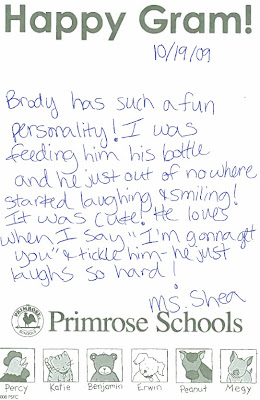 Happy Gram!
10/19/09
Brady has such a fun
personality! I was
feeding him his bottle
and he just out of nowhere
started laughing & smiling!
It was cute! He loves
when I say "I'm gonna get
you" & tickle him - he just
laughs so hard!
Ms. Shea
PRIMROSE
Primrose Schools
Percy Katie Benjamin Erwin Peanut Megy